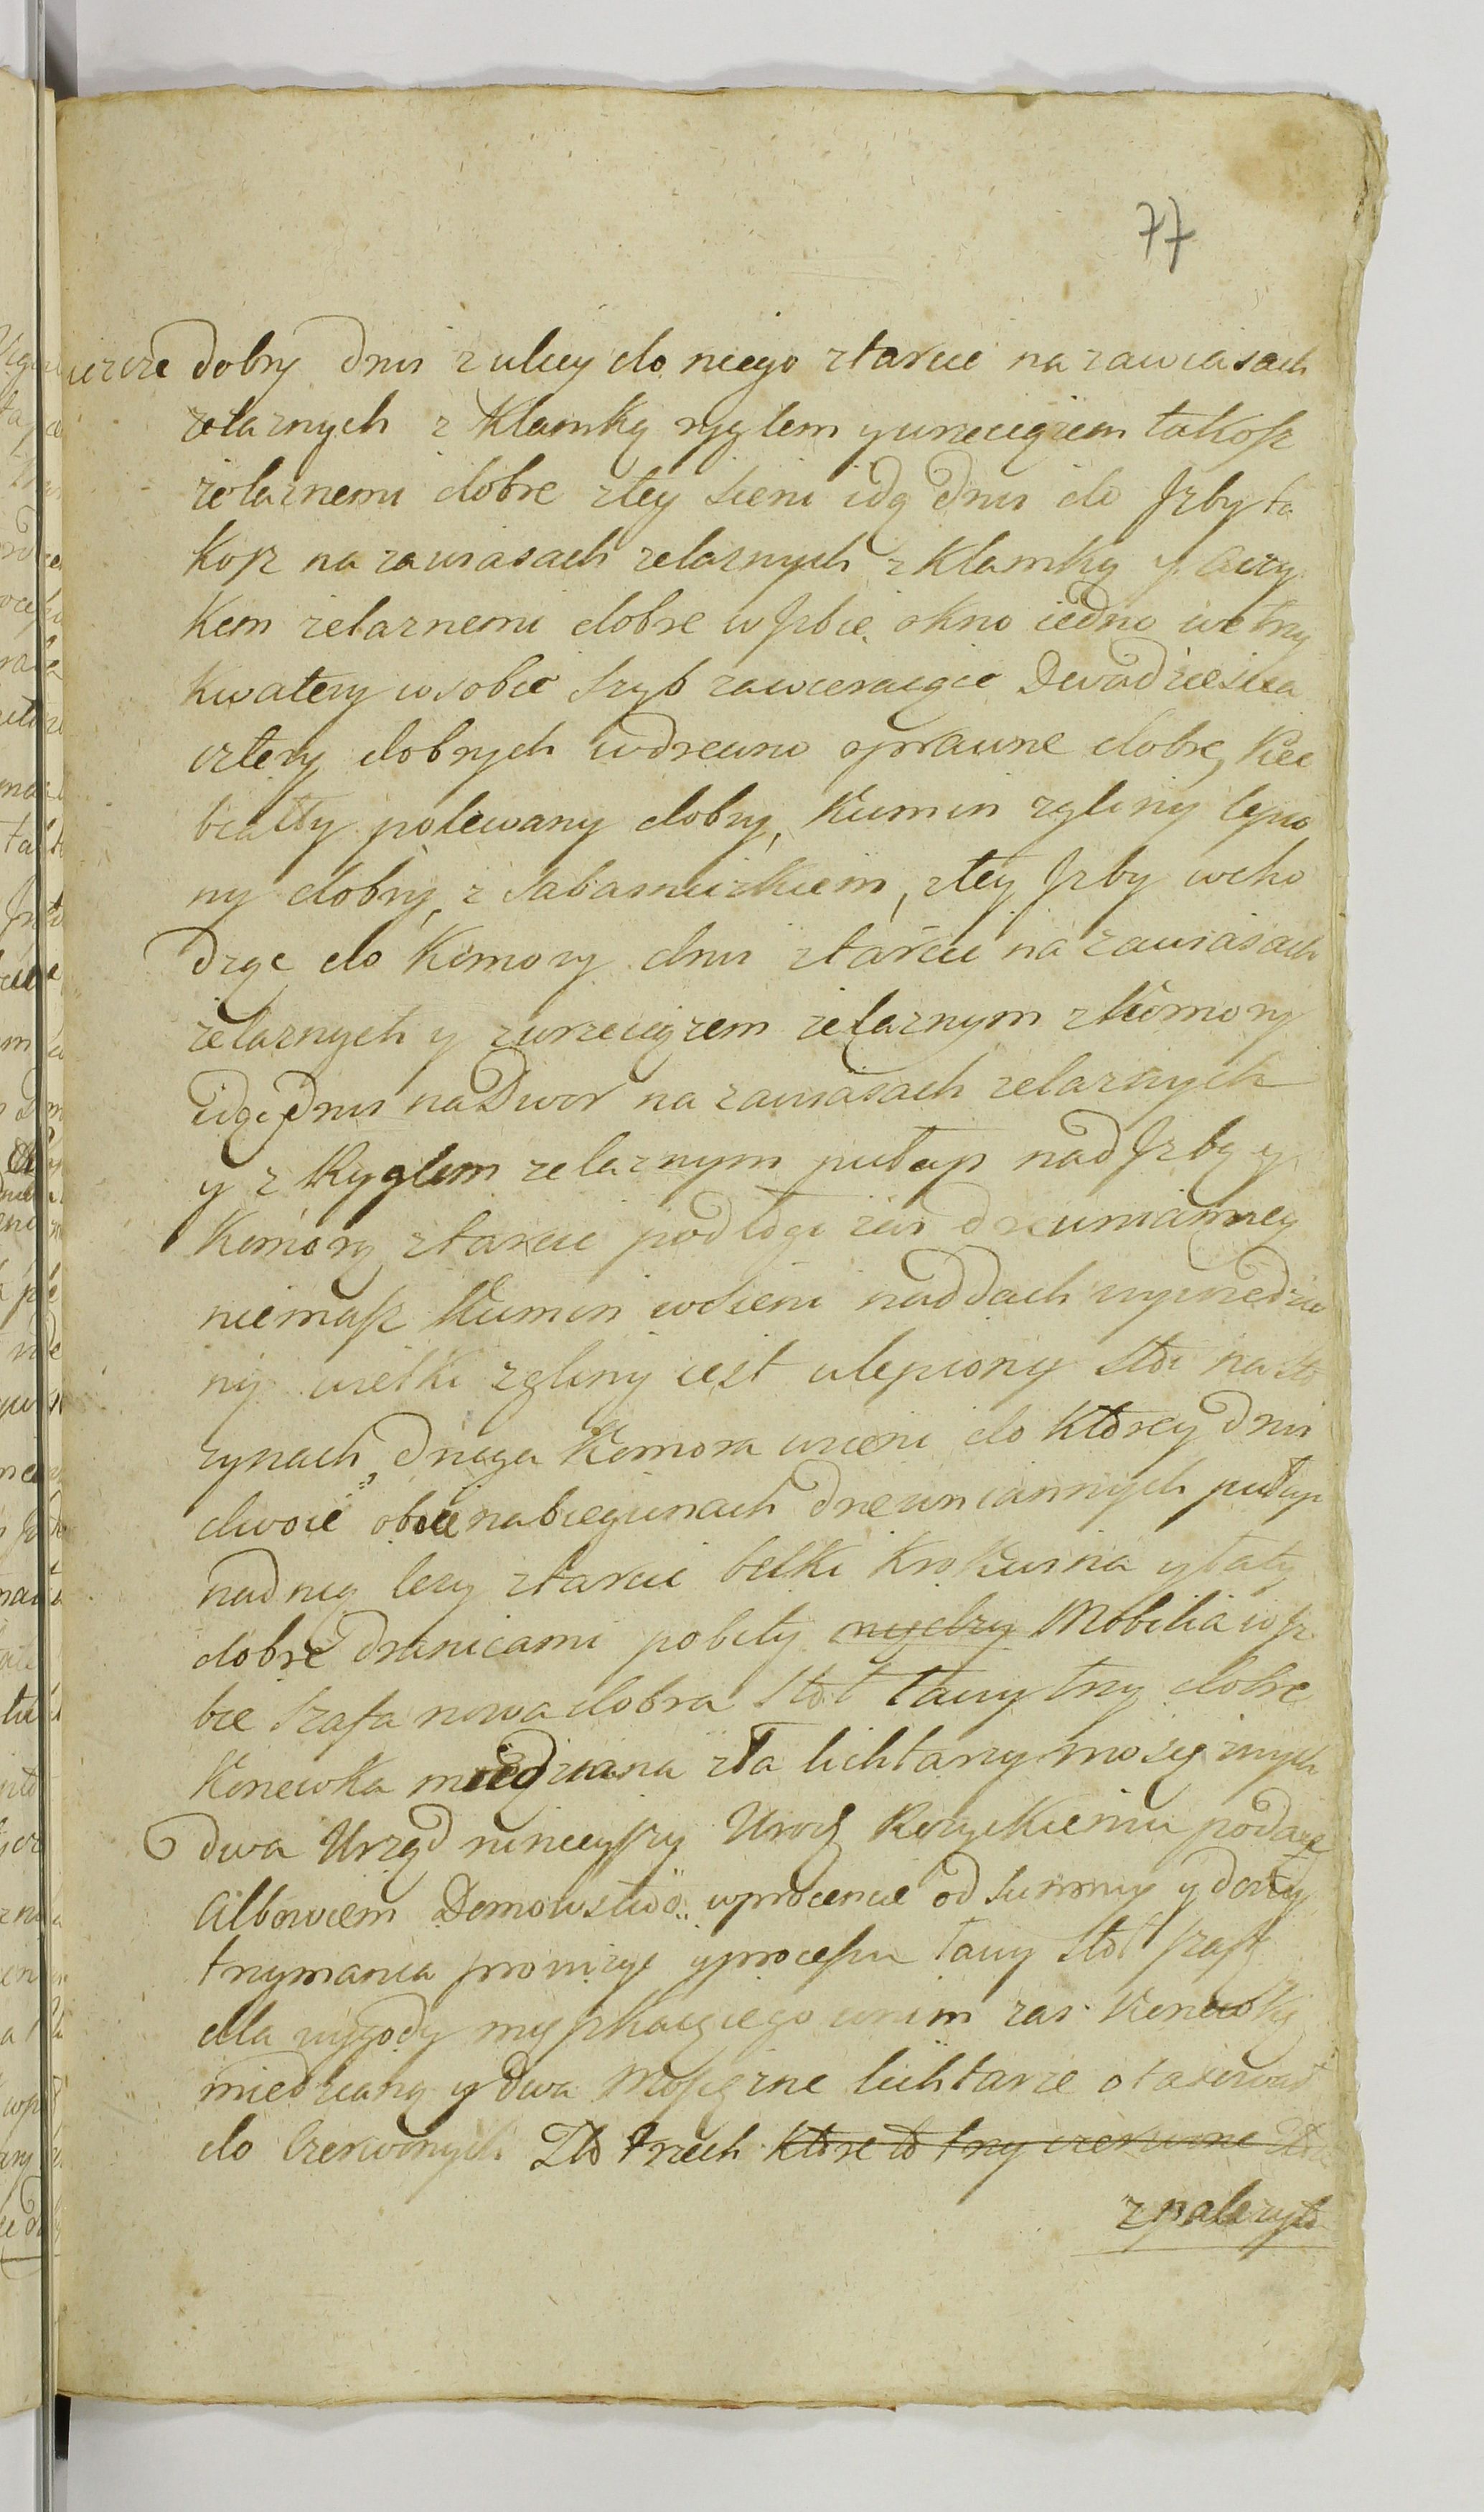 77
ieszcze dobry drzwi z ulicy do niego z tarcic na zawiasach
żelaznych z Klamką ryglem y wrzeciązem takosz
żelaznemi dobre z tey sieni idą drzwi do Jzby ta
kosz na zawiasach zelaznych z Klamką y
Kem zelaznemi dobre w Jzbie okno iedno we trzy
kwatery w sobie szyb zawieraiące Dwadzieścia
cztery dobrych w drewno oprawne dobre, Piec
biały polewany dobry, Kumin z gliny lepio
ny dobry z Sabasnickiem, z tey Jzby wcho
dząc do Komory drzwi z tarcic na zawiasach
żelaznych y z wrzeciązem żelaznym z Komory
idą drzwi na Dwor na zawiasach zelaznych
y z Ryglem zelaznym pułap nad Jzbą y
Komorą z tarcic podłogi zas drewnianney
niemasz Kumin w sieni nad dach wywiedzio
ny wielki z gliny iest ulepiony stoi na sło
zynach, druga Komora w sieni do ktorey drzwi
dwoie oboie na biegunach drewniannych pułap
nad nią lezy z tarcic belki krokwinia y łaty
dobre dranicami pobity Mobilia w Jz
bie szafa nowa dobra stoł ławy trzy dobre
Konewka miedziana zła lichtarzy mosięznych
dwa Urząd ninieyszy Urodz podaiąc
Albowiem Domowstwo w procencie od summy y
trzymania prowizyi y processu ławy stoł szafę
dla wygody mięszkaiącego w nim zas Konewkę
miedzianą y dwa Mosięzne lichtarze otaxował
do Czerwonych Zło trzech ktore to trzy czerwone Zło
z nalezyto